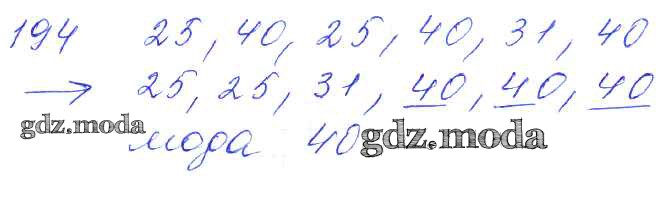 194 25, 40, 25, 40, 31, 40
→ 25, 25, 31, 40, 40, 40
gdz.moda
мода 40 gdz.moda